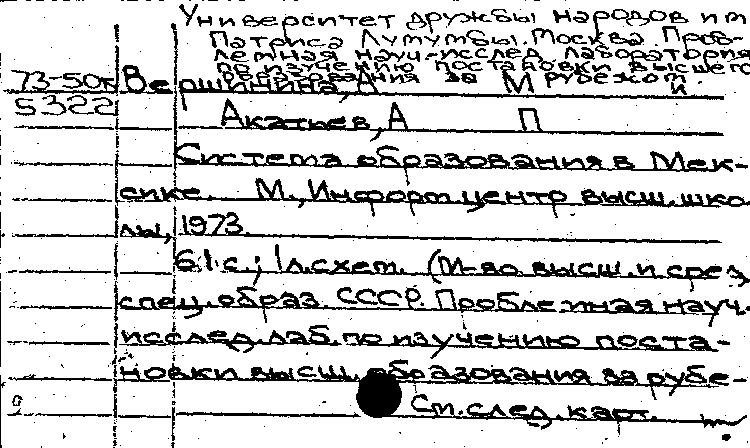 Университет дружбы народов им
Патриса Лумумбы. Москва. Проб-
лемная науч-исслед лаборатория
по изучению постановки высшего
образования за рубежом.
73-50к Вершинина, А М и
5322
Акатьев, А П
Система образования в Мек-
сике. М., Информ.центр высш.шко-
лы, 1973.
61 с.; 1 л.схем. (М-во высш. и сред
спец. образ. СССР. Проблемная науч.
исслед.лаб. по изучению поста-
новки высш. образования за рубе-
См.след.карт.